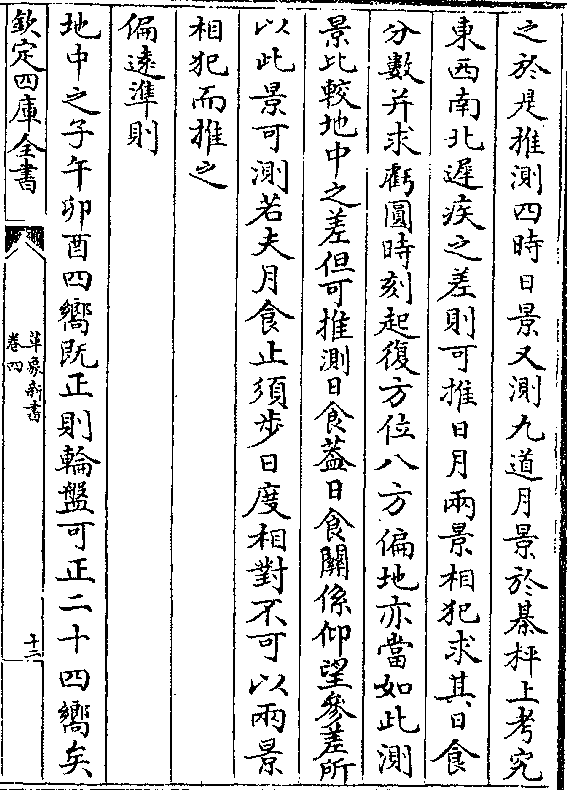 之於是推測四時日景又測九道月景於棊枰上考究
東西南北遲疾之差則可推日月兩景相犯求其日食
分數并求虧圓時刻起復方位八方偏地亦當如此測
景比較地中之差但可推測日食葢日食關係仰望參差所
以此景可測若夫月食止須步日度相對不可以兩景
相犯而推之
偏遠準則
地中之子午卯酉四嚮既正則輪盤可正二十四嚮矣
欽定四庫全書
革象新書
卷四
十三